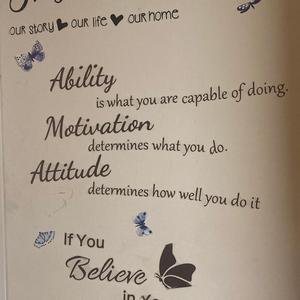 our story our life our home
Ability
is what you are capable of doing.
Motivation
determines what you do.
Attitude
determines how well you do it
If You
Believe
in